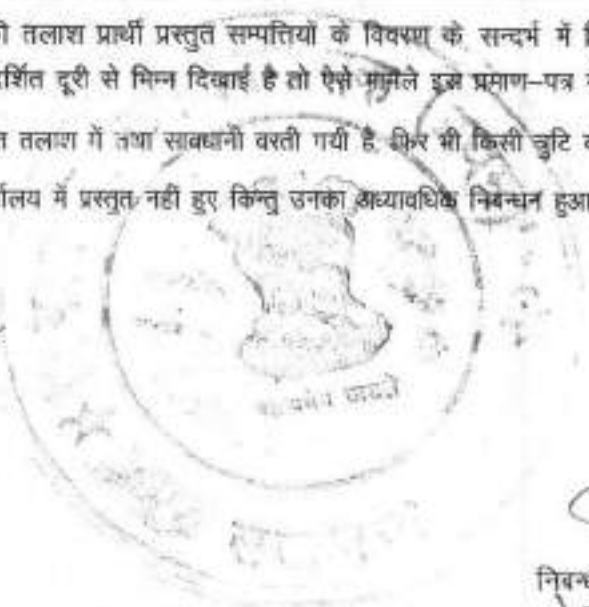 तलाश प्रार्थी प्रस्तुत सम्पत्तियों के विवरण के सन्दर्भ में
र्शित दूरी से भिन्न दिखाई है तो ऐसे मामले इस प्रमाण–पत्र
तलाश में तथा सावधानी वरती गयी है, फिर भी किसी त्रुटि
र्यालय में प्रस्तुत नही हुए किन्तु उनका अध्यावधिक निबन्धन हुआ
निबन्ध